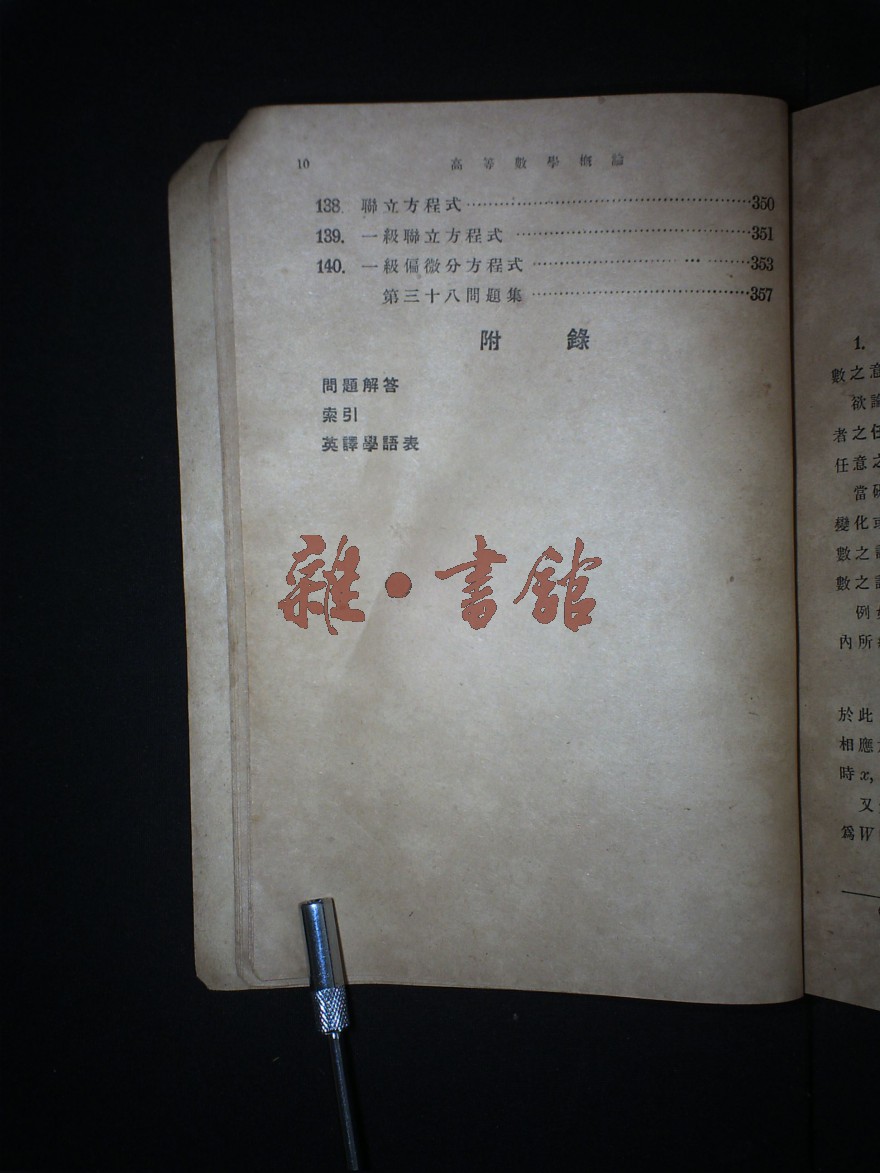 10 高等數學概論
138. 聯立方程式……350
139. 一級聯立方程式……351
140. 一級偏微分方程式……353
第三十八問題集……357
附 錄
問題解答
索引
英譯學語表
雜·書館
1.
數之意
欲論
者之任
任意之
當研
變化或
數之
數之
例如
內所
於此
相應
時 x,
又
爲W